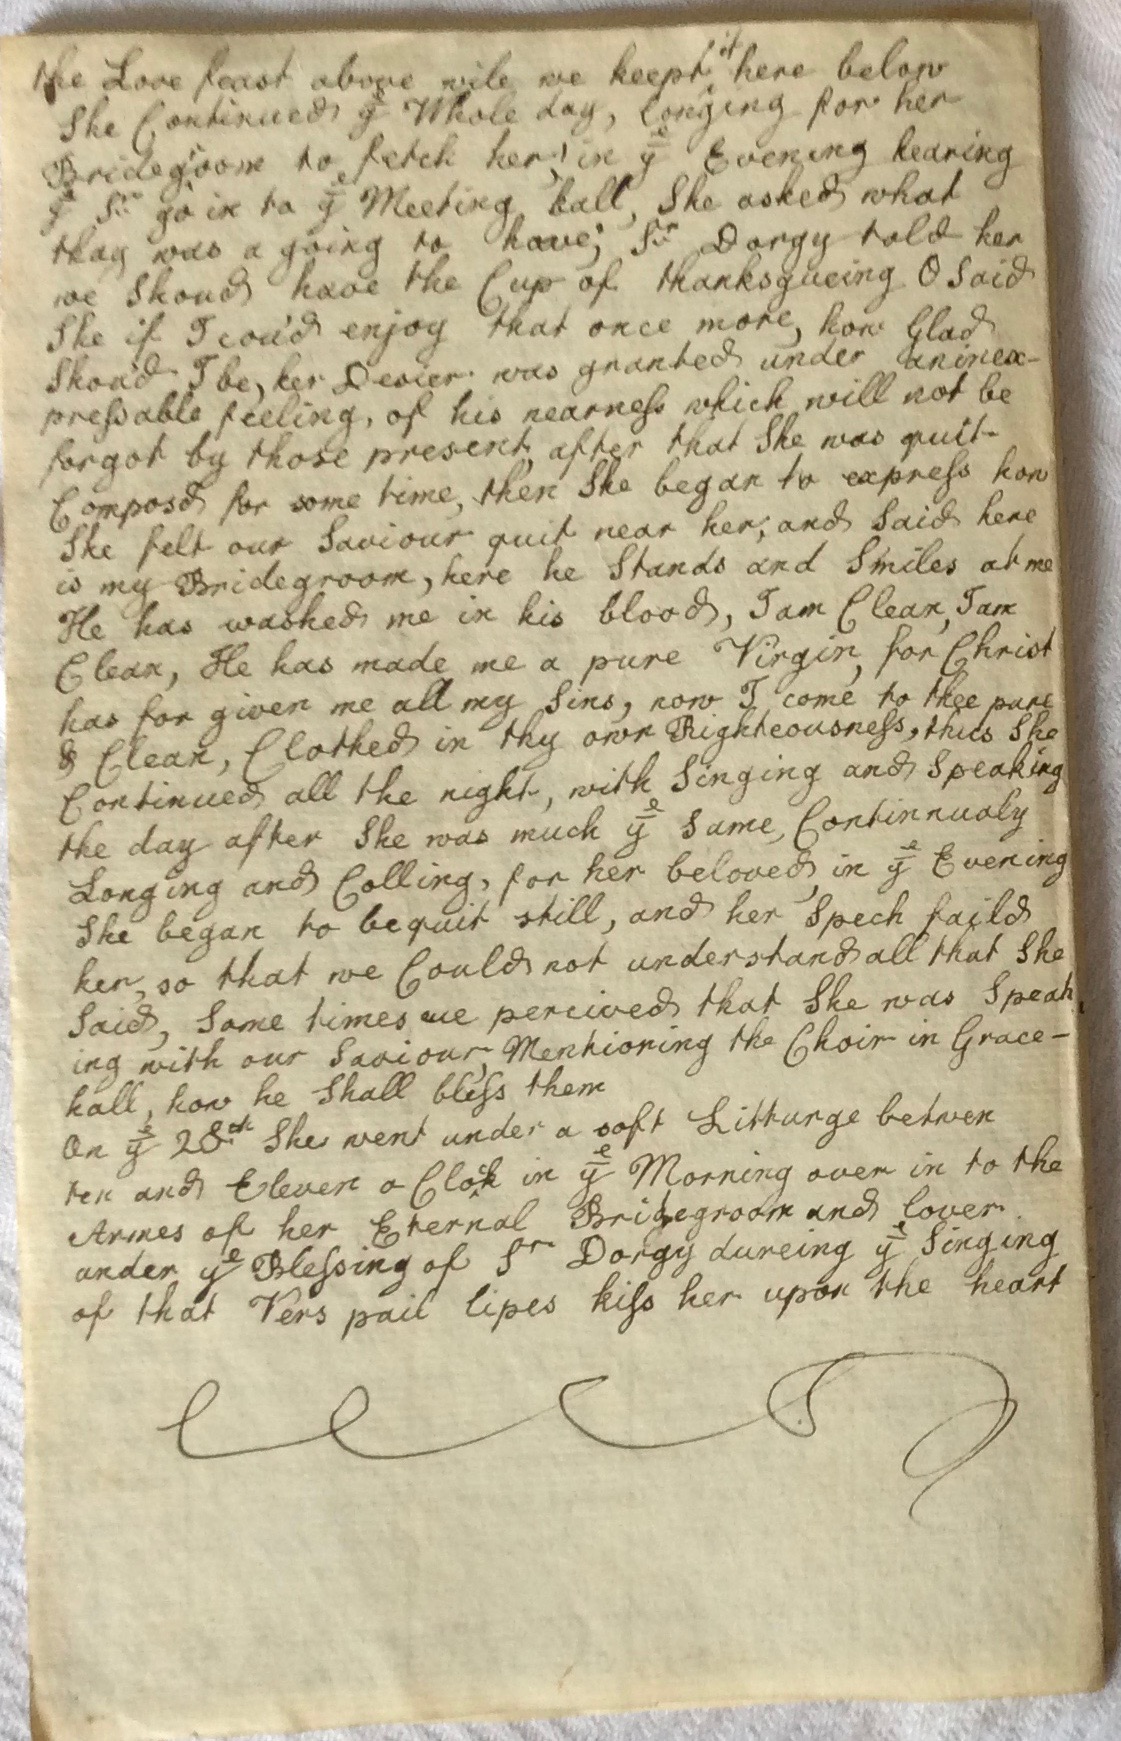 the Love feast above wile we keept it here below
She Continued ye Whole day, longing for her
Bridegroom to fetch her, in ye Evening hearing
ye Srs go in to ye Meeting hall, She asked what
thay was a going to have; Sr Dorgy told her
we Shoud have the Cup of thanksgueing O Said
She if I coud enjoy that once more, how Glad
Shoud I be, her Desier was granted under an inex-
pressable feeling, of his nearness which will not be
forgot by those present, after that She was quit
Composd for some time, then She began to express how
She felt our Saviour quit near her, and Said here
is my Bridegroom, here he Stands and Smiles at me
He has washed me in his blood, I am Clean, I am
Clean, He has made me a pure Virgin, for Christ
has for given me all my Sins, now I come to thee pure
& Clean, Clothed in thy own Righteousness, thus She
Continued all the night, with Singing and Speaking
the day after She was much ye Same, Continnualy
Longing and Colling, for her beloved, in ye Evening
She began to be quit still, and her Spech faild
her, so that we Could not understand all that She
Said, Some times we percived that She was Speak
ing with our Saviour, Mentioning the Choir in Grace-
hall, how he Shall bless them
On ye 28th She went under a soft Litturge betwen
ten and Eleven o Clock in ye Morning over in to the
Armes of her Eternal Bridegroom and lover
under ye Blessing of Sr Dorgy dureing ye Singing
of that Vers pail lipes kiss her upon the heart